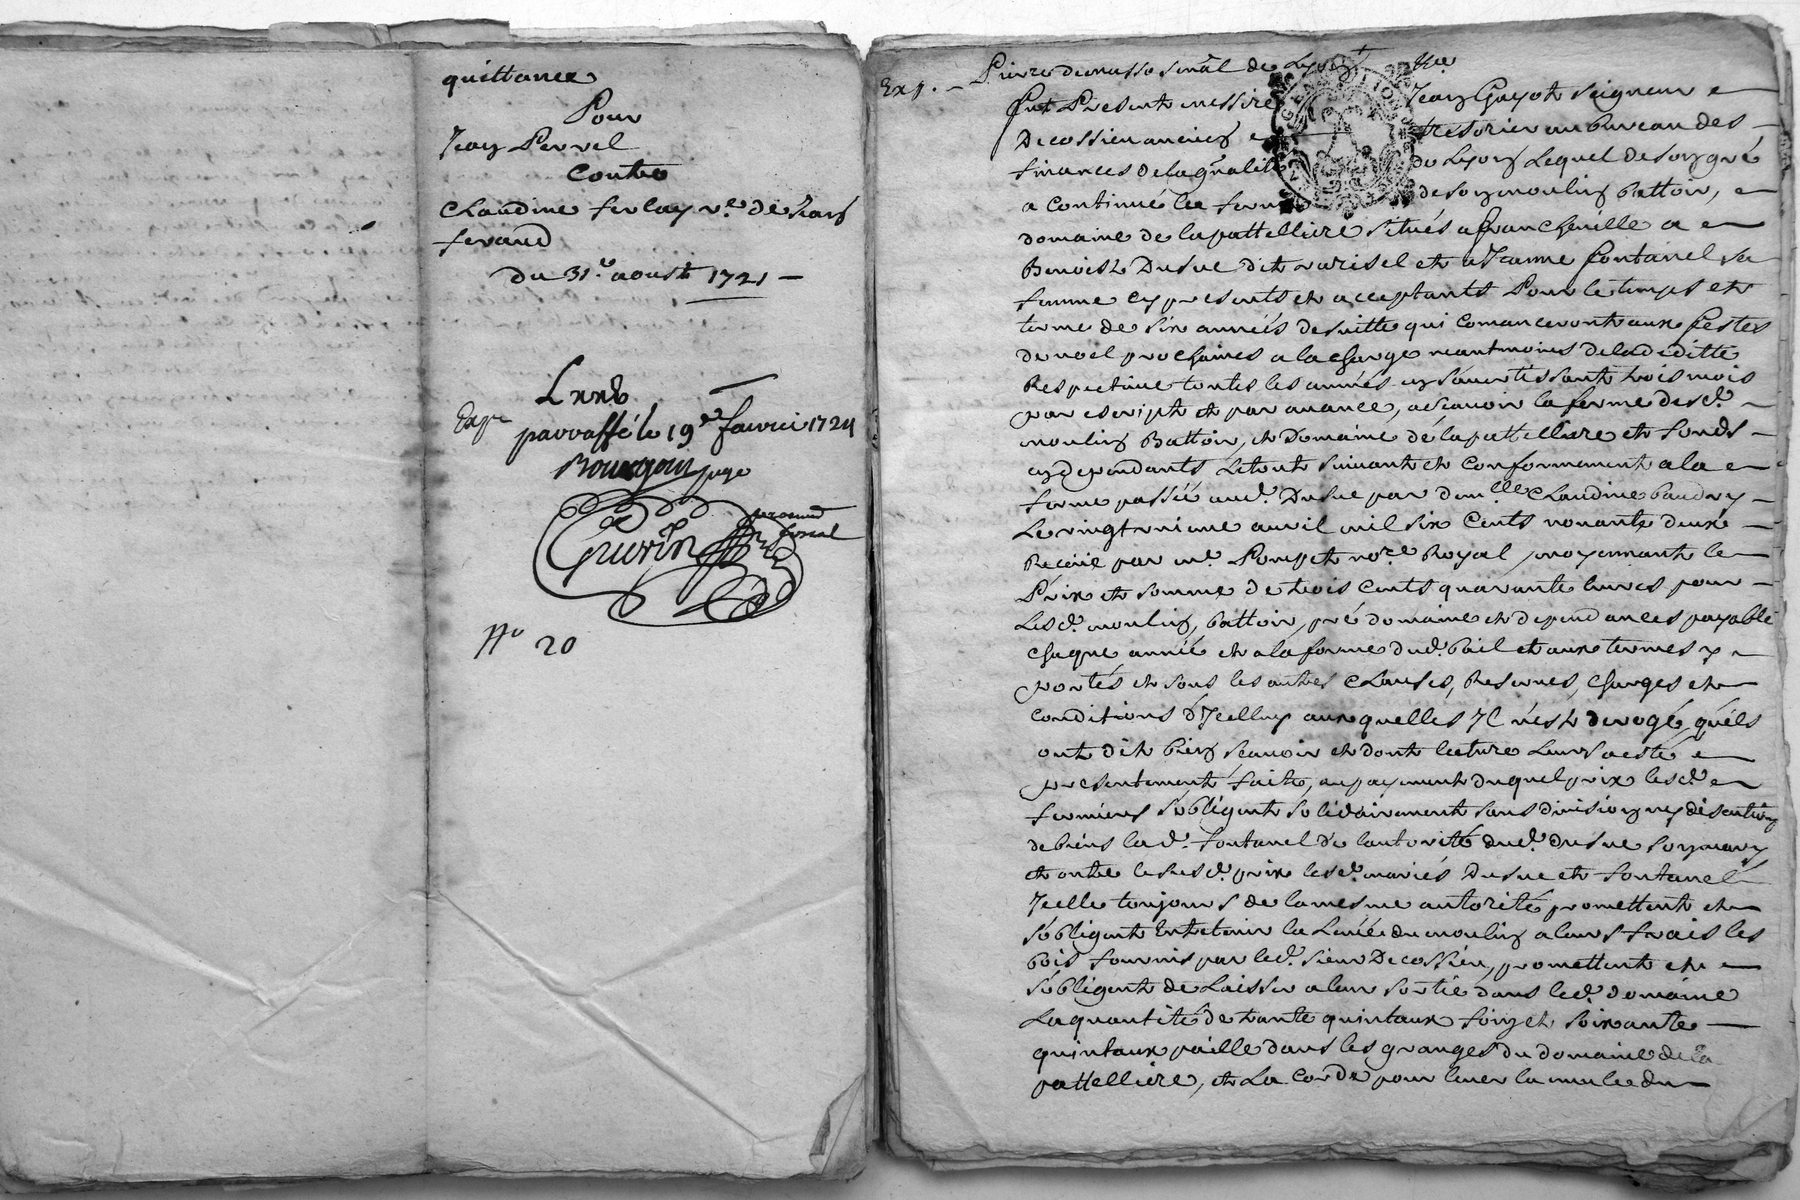 quittance
Pour
Jean Perrel
Contre
Claudine ferlay v.e de Jean
feraud
du 31.e aoust 1721 –
Exp.
paraffé le 19e 1724
Bourgoin juge
Guerin
procureur
fiscal
No 20
Exp. –
de Lyon
fut Present messire Jean Guyot seigneur
De cossieu ancien tresorier au bureau des
finances de la gnalité de Lyon Lequel de son gré
a continué la ferme de son moulin battoir,
domaine de la pattelliere situés a francheville a
Benoist Dusuc dit varisel et a Jeanne fontanel sa
femme cy presents et acceptants Pour le temps et
terme de six années de suitte qui comanceront aux festes
de noel prochaines a la charge neantmoins de la déditte
Respective toutes les années en s'avertissant trois mois
par escript et par avance, a sçavoir la ferme desd.
moulin Battoir, et Domaine de la pattelliere et fonds
en dependants Le tout suivant et conformement a la
ferme passée aud. Dusuc par dem.lle Claudine baudry
Le vingtnieme avril mil six cents nonante deux
Receüe par me. not.re Royal, moyennant le
Prix et somme de trois cents quarante livres pour
Lesd. moulin, battoir, pré domaine et dependances payable
chaque année et a la forme dud. bail et aux termes y
portés et sous les autres clauses, Reserves, charges et
conditions d'Jcelluy auxquelles Jl n'est derogé, qu'ils
ont dit bien sçavoir et dont lecture Leurs a esté
presentement faite, au payement duquel prix lesd.
fermiers s'obligent solidairement sans division ny discution
de biens lad. fontanel de l'autorité dud. dusuc son mary
et outre le susd. prix lesd. mariés Dusuc et fontanel
Jcelle toujours de la mesme autorité promettent et
s'obligent Entretenir la Levée du moulin a leurs frais les
bois fournis par led. sieur De cossieu, promettent et
s'obligent de Laisser a leur sortie dans led. domaine
La quantité de trante quintaux foin et soixante
quintaux paille dans les granges du domaine de la
pattelliere, et La corde pour lever la meule du